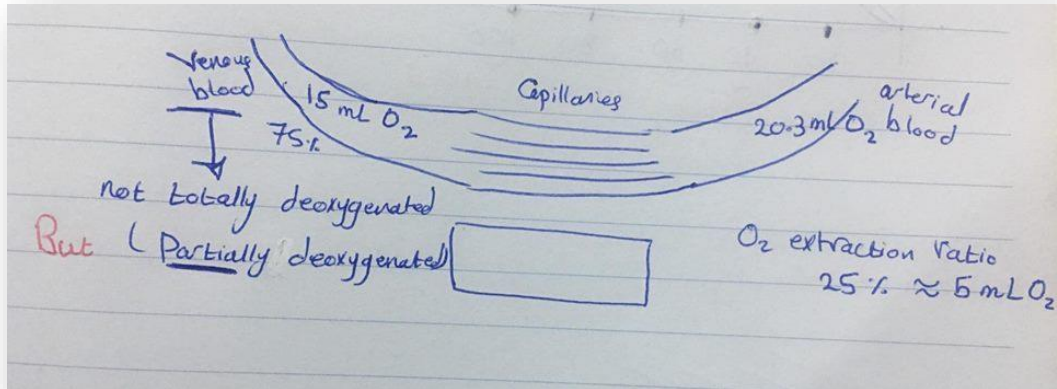 Venous
blood
15 mL O₂
75%
Capillaries
20.3 mL O₂
arterial
blood
not totally deoxygenated
But (Partially deoxygenated)
O₂ extraction ratio
25% ≈ 5 mL O₂